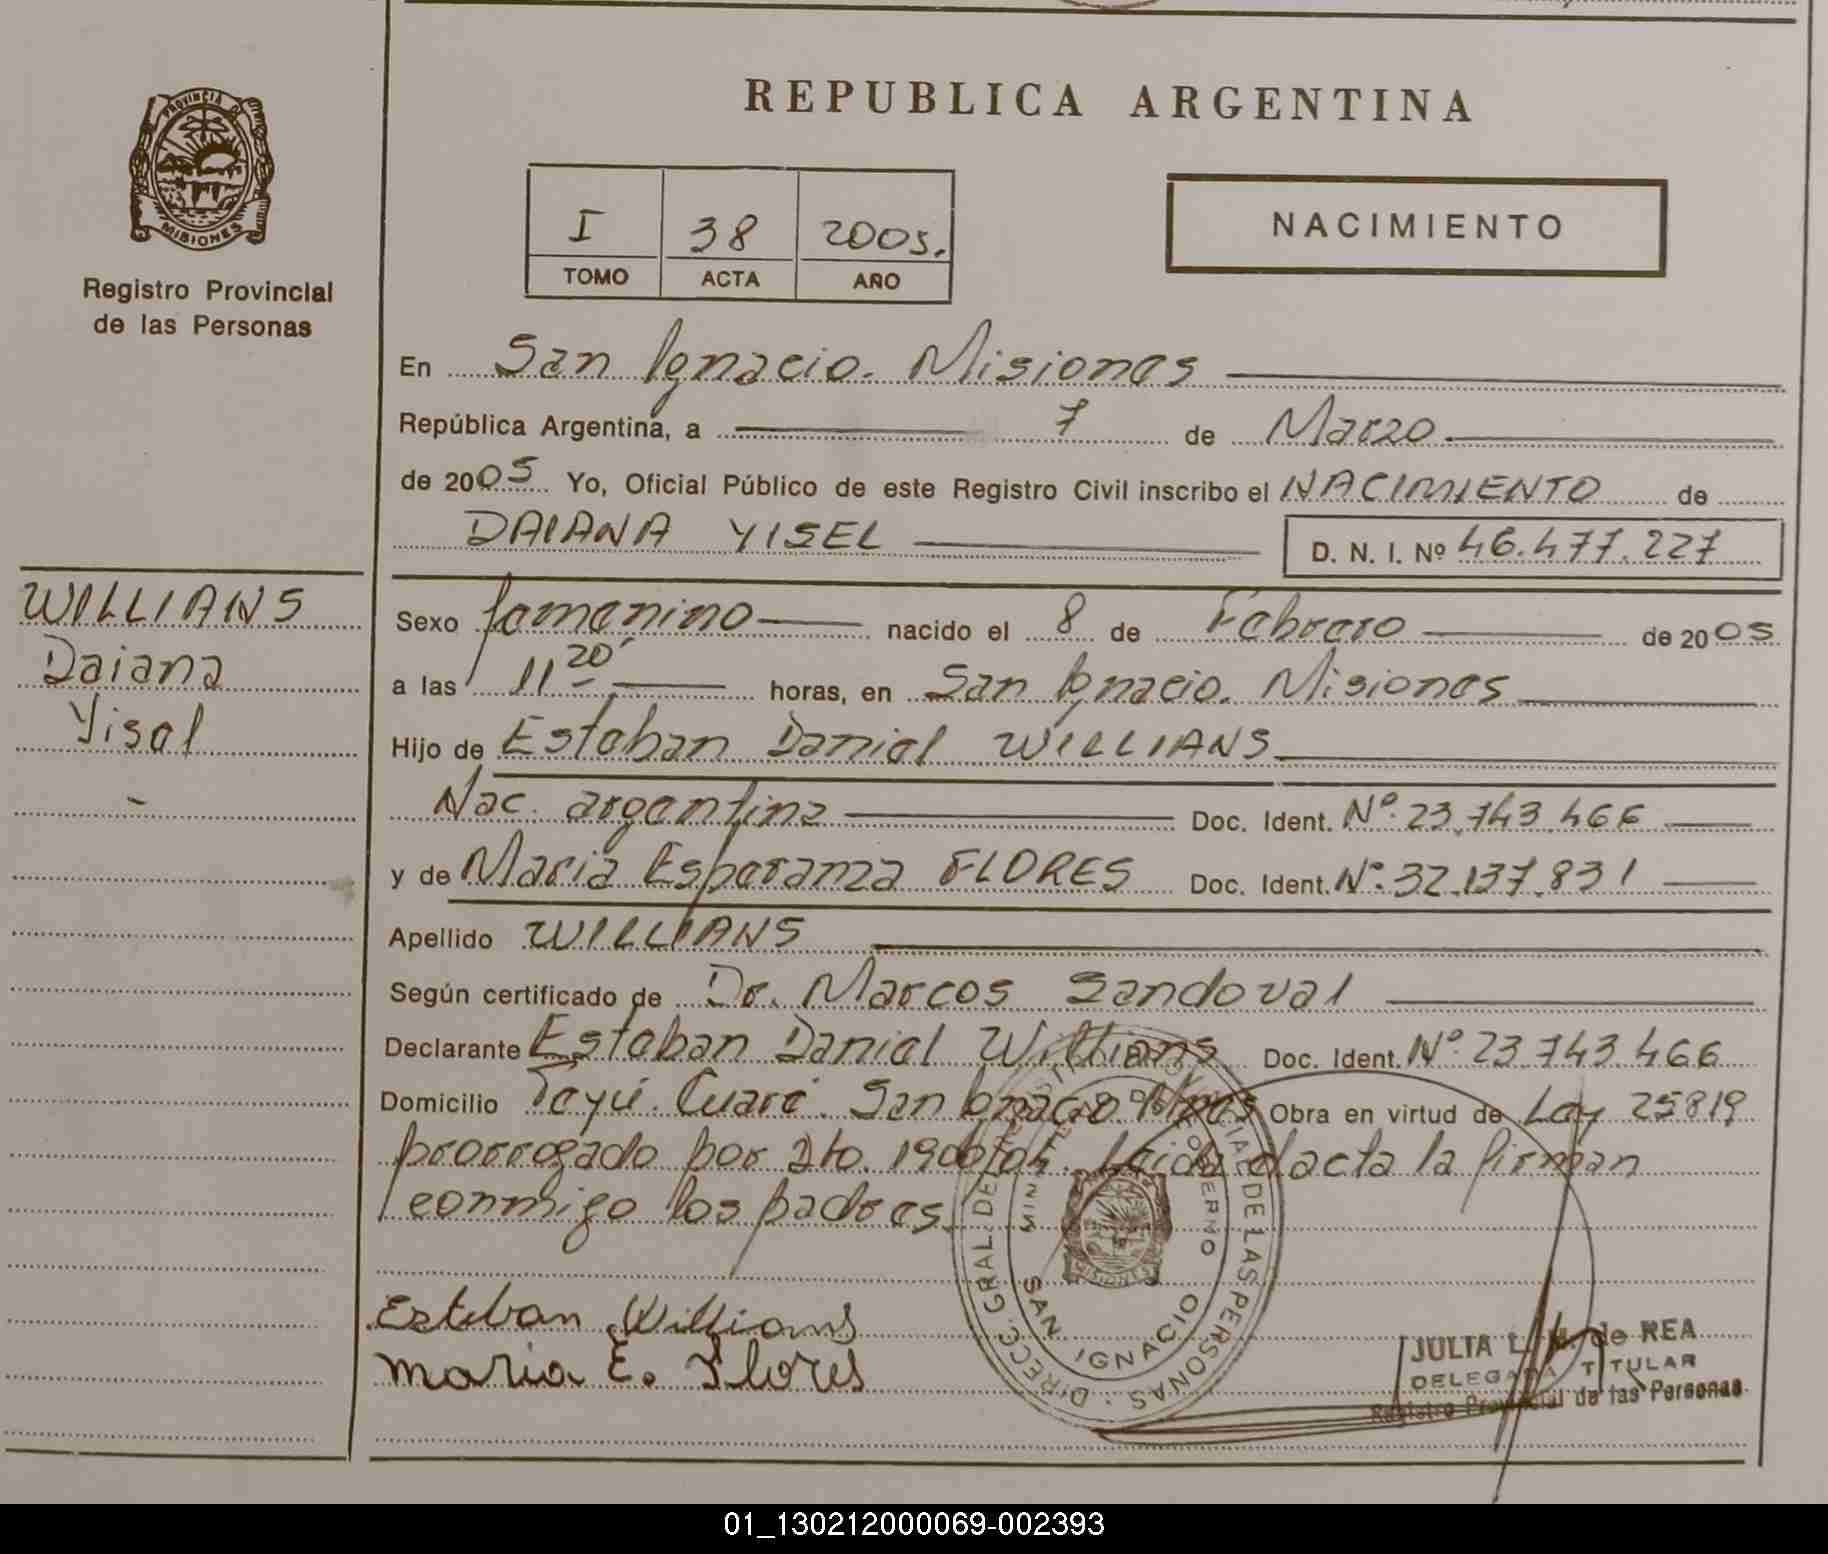 PROVINCIA DE
MISIONES
Registro Provincial
de las Personas
REPUBLICA ARGENTINA
I 38 2005.
TOMO ACTA AÑO
NACIMIENTO
En San Ignacio. Misiones
República Argentina, a 7 de Marzo
de 2005 Yo, Oficial Público de este Registro Civil inscribo el NACIMIENTO de
DAIANA YISEL D. N. I. Nº 46.477.227
WILLIANS
Daiana
Yisel
Sexo femenino nacido el 8 de Febrero de 2005
a las 11 20' horas, en San Ignacio. Misiones
Hijo de Esteban Daniel WILLIANS
Nac. argentina Doc. Ident. Nº. 23.743.466
y de Maria Esperanza FLORES Doc. Ident. Nº. 32.137.831
Apellido WILLIANS
Según certificado de Dr. Marcos Sandoval
Declarante Esteban Daniel Willians Doc. Ident. Nº. 23.743.466
Domicilio Teyú. Cuaré. San Ignacio. Mnes Obra en virtud de Ley 25819
prorrogado por Dto. 1900/04. Leida el acta la firman
conmigo los padres.
Esteban Willians
Maria E. Flores
DIRECC. GRAL. DE LAS PERSONAS
GOBIERNO
SAN IGNACIO
MISIONES
JULIA L. de REA
DELEGADA TITULAR
Registro Provincial de las Personas
01_130212000069-002393